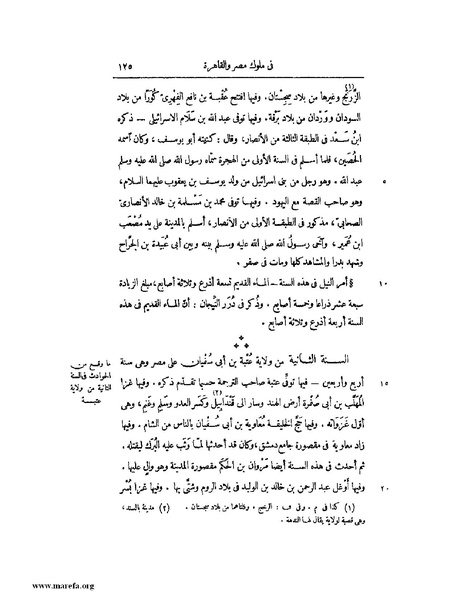 فى ملوك مصر والقاهرة ١٢٥
الزَّرَنج وغيرها من بلاد سِجِسْتان. وفيها افتتح عُقْبة بن نافع الفِهْرِىّ كُورًا من بلاد
السودان ووَرْدان من بلاد بَرْقة. وفيها توفى عبد الله بن سَلَام الاسرائيلى – ذكره
ابنُ سَعْد فى الطبقة الثالثة من الأنصار، وقال: كنيته أبو يوسف، وكان اسمه
الحُصَين، فلما أسلم فى السنة الأولى من الهجرة سمّاه رسول الله صلى الله عليه وسلم
٥ عبد الله. وهو رجل من بنى اسرائيل من ولد يوسف بن يعقوب عليهما السلام،
وهو صاحب القصة مع اليهود. وفيها توفى محمد بن مَسْلَمة بن خالد الأنصارىّ
الصحابىّ، مذكور فى الطبقة الأولى من الأنصار، أسلم بالمدينة على يد مُصْعَب
ابن عُمَير، وآخَى رسولُ الله صلى الله عليه وسلم بينه وبين أبى عُبَيدة بن الجَرّاح
وشهد بدرا والمشاهد كلها ومات فى صفر.
١٠ § أمر النيل فى هذه السنة – الماء القديم تسعة أذرع وثلاثة أصابع، مبلغ الزيادة
سبعة عشر ذراعا وخمسة أصابع. وذُكر فى دُرَر التِّيجان: أنّ الماء القديم فى هذه
السنة أربعة أذرع وثلاثة أصابع.
السنة الثانية من ولاية عُتْبة بن أبى سُفْيان على مصر وهى سنة
ما وقع من
الحوادث فى السنة
الثانية من ولاية
عتبـة
١٥ أربع وأربعين – فيها توفّى عتبة صاحب الترجمة حسبما تقدّم ذكره. وفيها غزا
المُهَلَّب بن أبى صُفْرة أرض الهند وسار الى قَنْدَابيل(٢) وكَسَر العدو وسَلِم وغَنِم، وهى
أوّل غَزَواته. وفيها حَجّ الخليفة مُعاوية بن أبى سُفْيان بالناس من الشام. وفيها
زاد معاوية فى مقصورة جامع دمشق، وكان قد أحدثها لمّا وَثَب عليه البُرَك ليقتله.
ثم أحدث فى هذه السنة أيضا مَرْوان بن الحَكَم مقصورة المدينة وهو والٍ عليها.
٢٠ وفيها أَوْغل عبد الرحمن بن خالد بن الوليد فى بلاد الروم وشَتَّى بها. وفيها غزا بُسْر
(١) كذا فى م. وفى ف: الرخج. وكلتاهما من بلاد سجستان. (٢) مدينة بالسند،
وهى قصبة لولاية يقال لها الندهة.
www.marefa.org